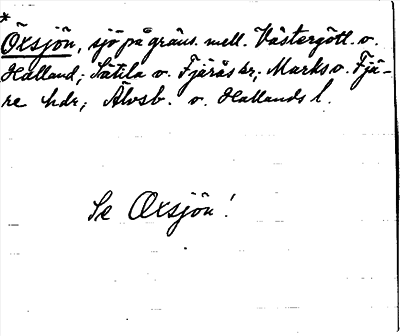 *
Öxsjön, sjö på gräns. mell. Västergötl. o.
Halland; Sätila o. Fjärås sr; Marks o. Fjä-
re hdr; Älvsb. o. Hallands l.
Se Oxsjön!